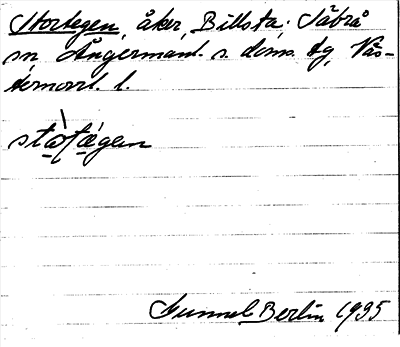 Stortegen, åker, Billsta. Säbrå
sn Ångermanl. s. doms. tg, Väs-
ternorrl. l.
stò̱ṯægen
Gunnel Berlin 1935